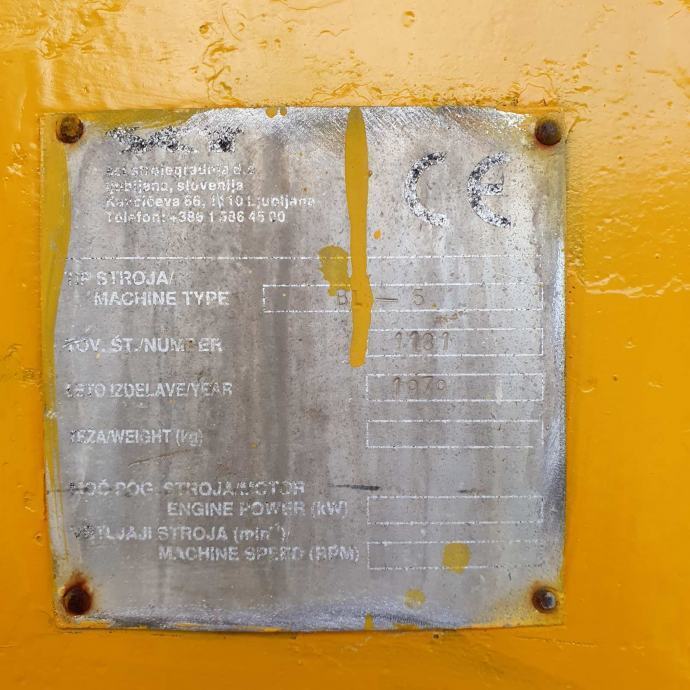 strojegradnja d.d.
ljubljana, slovenija
66, 1110 Ljubljana
Telefon: +386 1 586 45 00
CE
TIP STROJA/
MACHINE TYPE
BL - 5
TOV. ŠT./NUMBER
1181
LETO IZDELAVE/YEAR
1979
TEŽA/WEIGHT (kg)
MOČ POG. STROJA/MOTOR
ENGINE POWER (kW)
VRTLJAJI STROJA (min⁻¹)/
MACHINE SPEED (RPM)